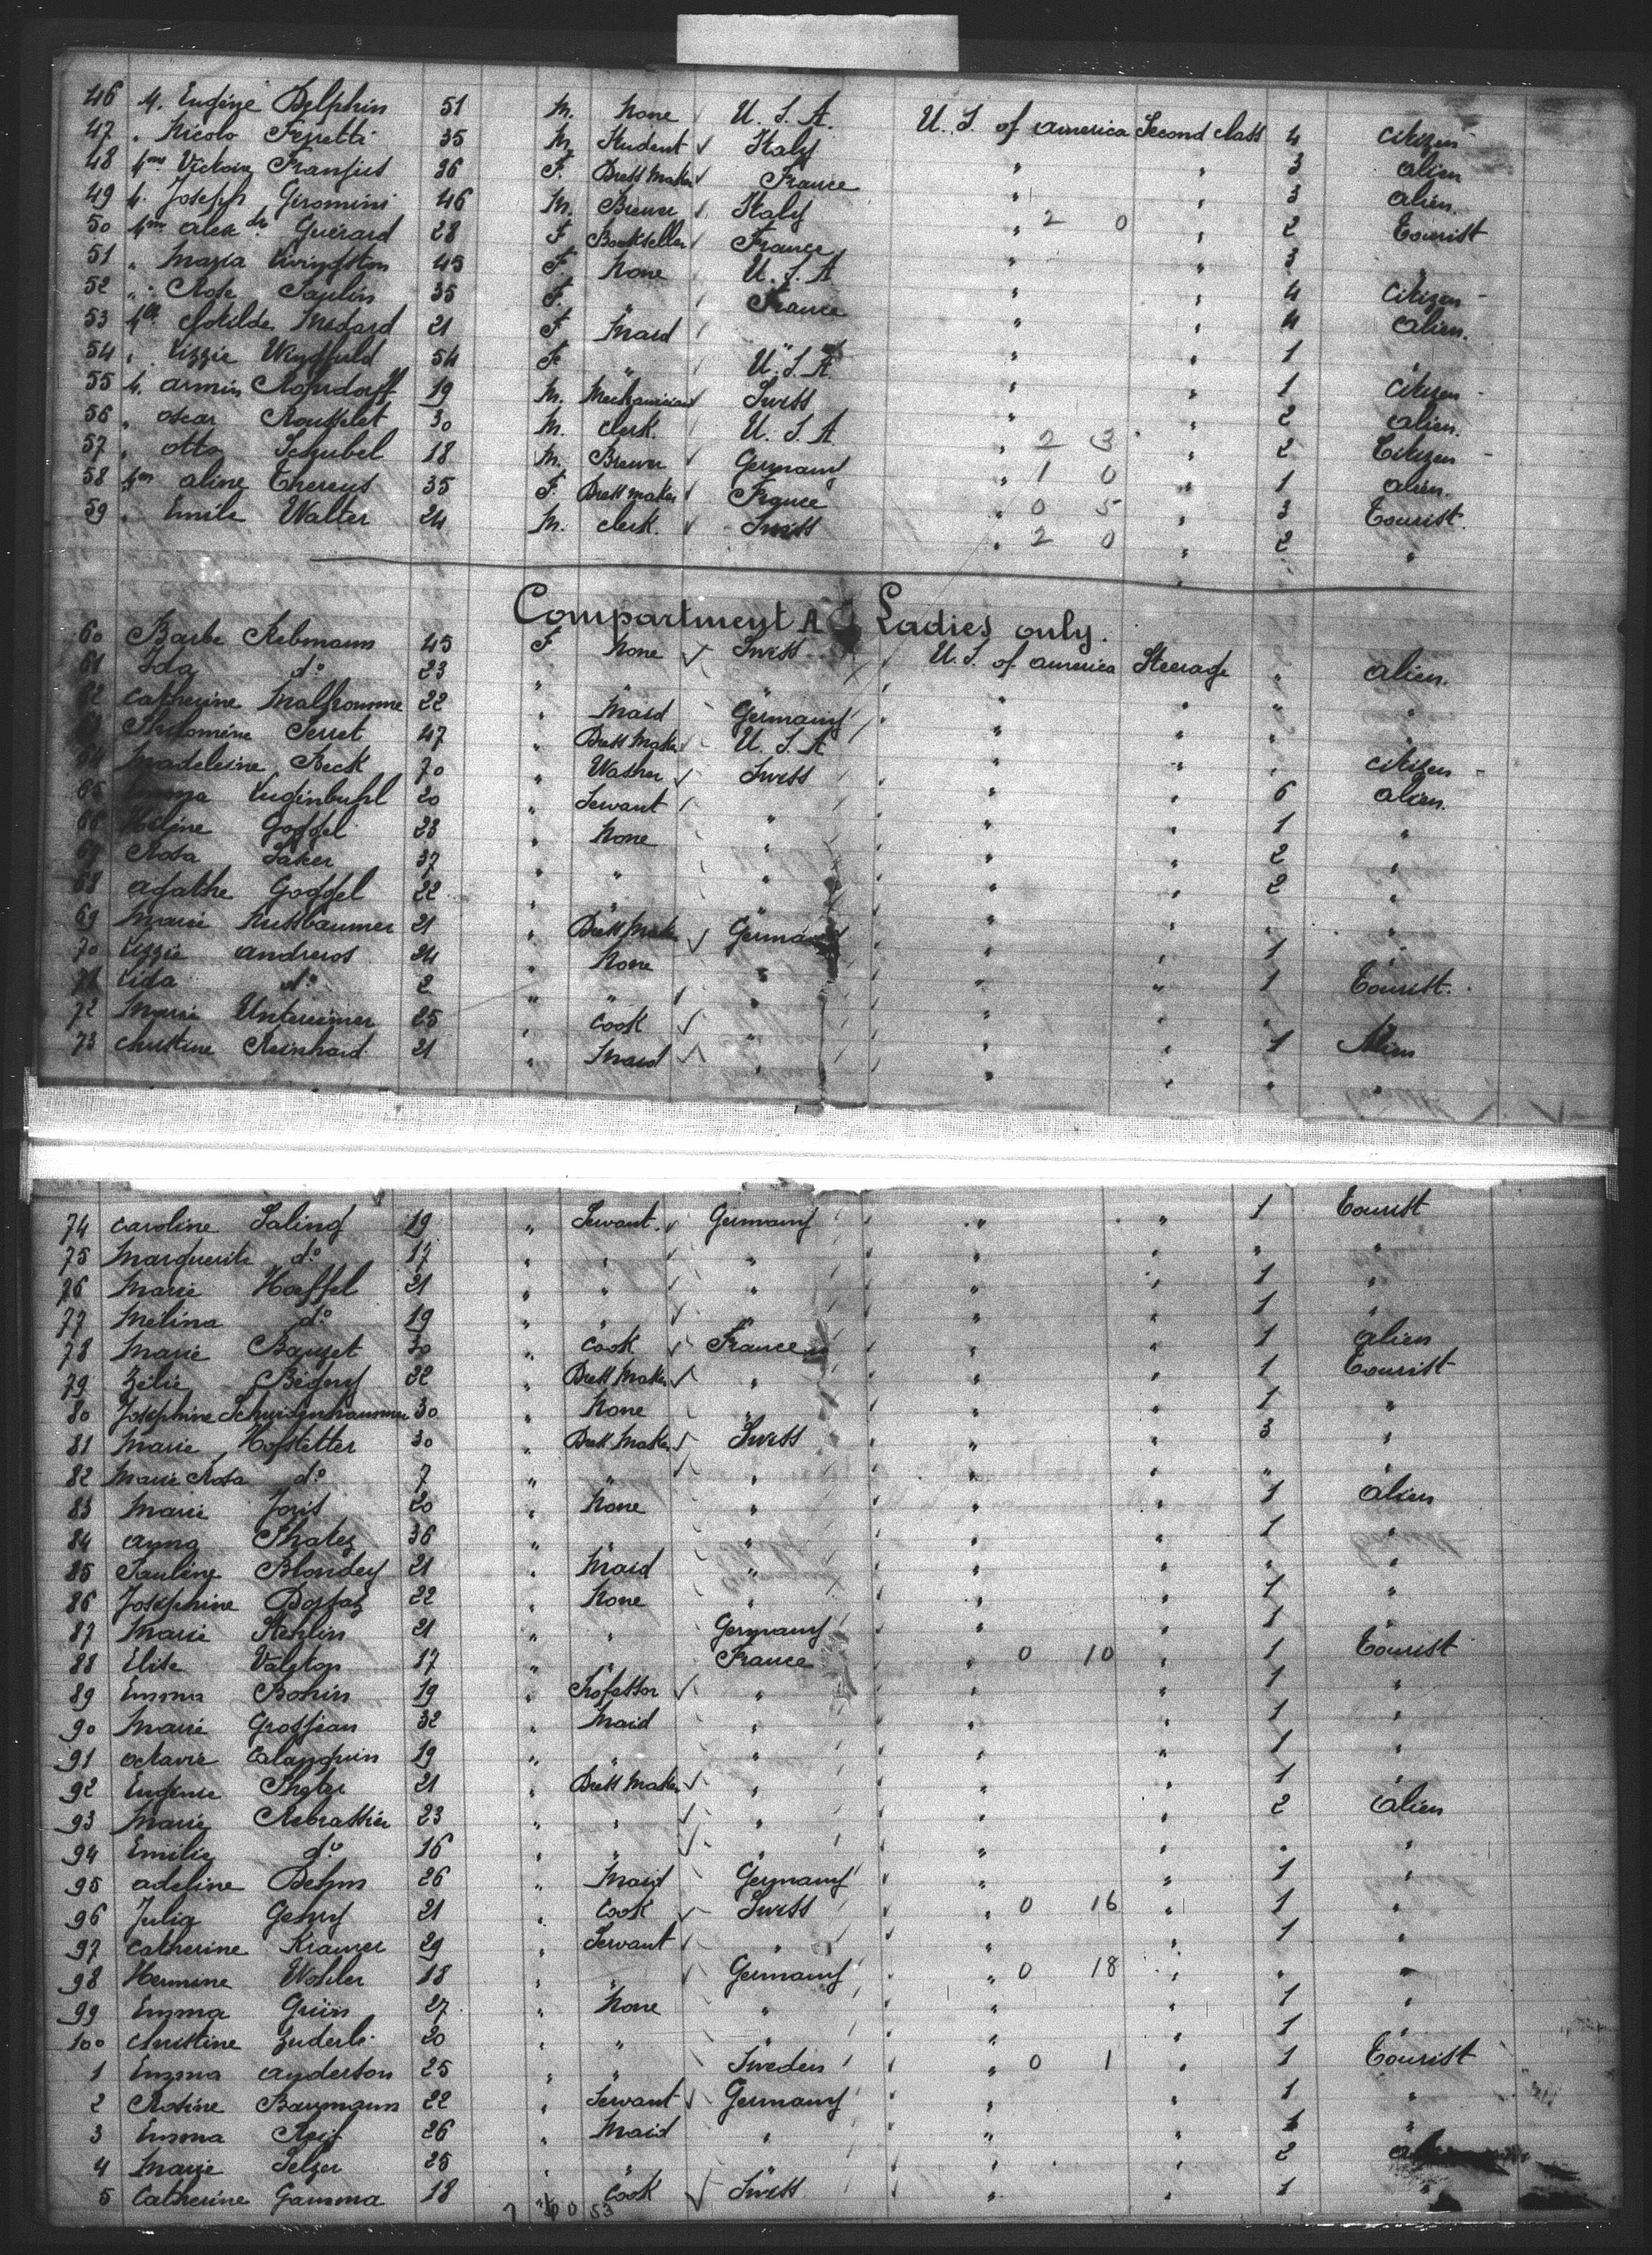 46 M. Eugène Delphin 51 M. None U. S. A. U. S. of america Second class 4 citizen
47 " Nicolo Ferretti 35 M. Student Italy " " 3 alien
48 Mme Victoire Franjus 36 F. Dress Maker France " " 3 alien.
49 M. Joseph Giromini 46 M. Brewer Italy " 2 0 " 2 Tourist
50 Mme alexdre Guérard 28 F. Bookseller France " " 3
51 " Maria Livingston 45 F. None U. S. A " " 4 Citizen
52 " Rose Saplin 35 F. " France " " 4 alien.
53 Mlle Clotilde Médard 21 F. Maid " " " 1 "
54 " Lizzie Wingfield 54 F. " U. S. A. " " 1 Citizen
55 M. armin Rohrdorff 19 M. Mechanician Swiss " " 2 alien.
56 " oscar Rousselet 30 M. clerk. U. S. A " 2 3 " 2 Citizen
57 " otto Schubel 18 M. Brewer Germany " 1 0 " 1 alien.
58 Mme aline Thereus 35 F. Dress maker France " 0 5 " 3 Tourist.
59 " Emile Walter 24 M. clerk. Swiss " 2 0 " 2 "
Compartment A Ladies only.
60 Barbe Rebmann 45 F None Swiss U. S. of america Steerage " alien.
61 Ida do 23 " " " " " " "
62 Catherine Malhomme 22 " Maid Germany " " " "
63 Philomène Serret 47 " Dress Maker U. S. A " " " citizen
64 Madeleine Beck 70 " Washer Swiss " " 6 alien.
65 Emma Luginbuhl 20 " Servant " " " 1 "
66 Hélène Goffel 23 " None " " " 2 "
67 Rosa Saker 37 " " " " " 2 "
68 agathe Goffel 22 " " " " " " "
69 Marie Nussbaumer 21 " Dress Maker Germany " " 1 "
70 Lizzie andreos 24 " None " " " 1 Tourist.
71 Lida do 2 " " " " " " "
72 Marie Untereimer 25 " Cook " " " 1 Alien
73 christine Reinhard 21 " Maid " " " " "
74 Caroline Saling 19 " Servant Germany " " 1 Tourist
75 Marguerite do 17 " " " " " " "
76 Marie Hoeffel 21 " " " " " 1 "
77 Mélina do 19 " " " " " 1 "
78 Marie Bauzet 30 " Cook France " " 1 alien
79 Zélie Bégny 22 " Dress Maker " " " 1 Tourist
80 Joséphine 30 " None " " " 1 "
81 Marie Hofstetter 30 " Dress Maker Swiss " " 3 "
82 Marie Rosa do 7 " " " " " " "
83 Marie Joris 20 " None " " " 1 alien
84 anna 36 " " " " " 1 "
85 Pauline Blondey 21 " Maid " " " " "
86 Joséphine 22 " None " " " 1 "
87 Marie Stehlin 21 " " Germany " " 1 "
88 Elise 17 " " France " 0 10 " 1 Tourist
89 Emma Bohin 19 " Professor " " " 1 "
90 Marie Grosjean 32 " Maid " " " 1 "
91 octavie Calanquin 19 " " " " " 1 "
92 Eugénie 21 " Dress Maker " " " 1 "
93 Marie Rebrassier 23 " " " " " 2 alien
94 Emilie do 16 " " " " " " "
95 adeline Dehm 26 " Maid Germany " " 1 "
96 Julia Genry 21 " Cook Swiss " 0 16 " 1 "
97 Catherine Kramer 29 " Servant " " " 1 "
98 Hermine Wohler 18 " " Germany " 0 18 " " "
99 Emma Grün 27 " None " " " 1 "
100 christine Zuderli 20 " " " " " 1 "
1 Emma anderson 25 " " Sweden " 0 1 " 1 Tourist
2 Rosine Baumann 22 " Servant Germany " " 1 "
3 Emma Reif 26 " Maid " " " 1 "
4 Marie Selzer 25 " " " " " 2
5 Catherine Gamma 18 " Cook Swiss " " 1 "